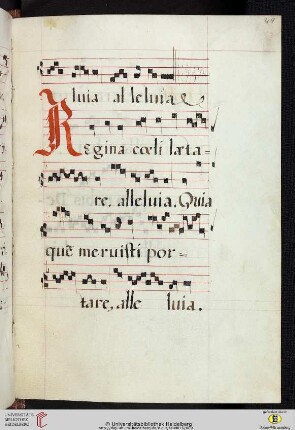 luia al leluia
Regina cœli læta-
re, alleluia. Quia
quẽ meruisti por-
tare, alle luia.
UNIVERSITÄTS-
BIBLIOTHEK
HEIDELBERG
© Universitätsbibliothek Heidelberg